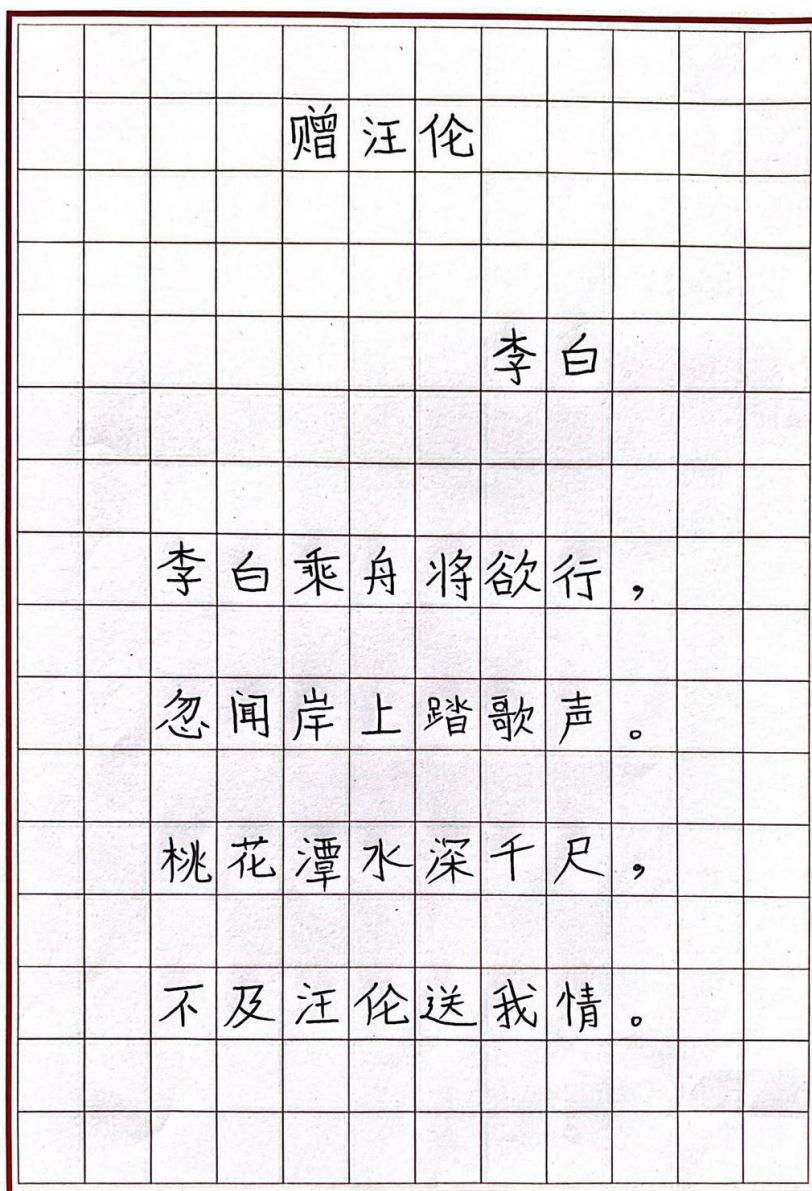 赠汪伦
李白
李白乘舟将欲行，
忽闻岸上踏歌声。
桃花潭水深千尺，
不及汪伦送我情。